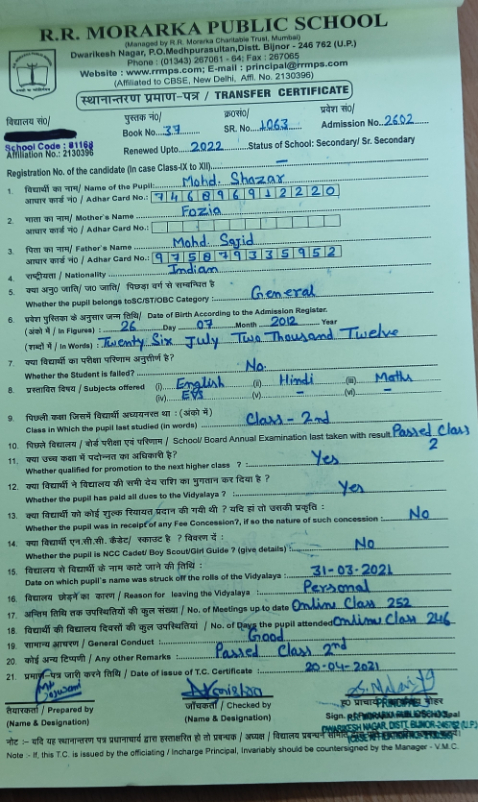 R.R. MORARKA PUBLIC SCHOOL
(Managed by R.R. Morarka Charitable Trust, Mumbai)
Dwarikesh Nagar, P.O.Medhpurasultan,Distt. Bijnor - 246 762 (U.P.)
Phone : (01343) 267061 - 64; Fax : 267065
Website : www.rrmps.com; E-mail : principal@rrmps.com
(Affiliated to CBSE, New Delhi, Affl. No. 2130396)
स्थानान्तरण प्रमाण-पत्र / TRANSFER CERTIFICATE
विद्यालय सं०/ पुस्तक नं०/ क्र०सं०/ प्रवेश सं०/
Book No. 37 SR. No. 1063 Admission No. 2602
School Code : 81168
Affiliation No.: 2130396 Renewed Upto 2022 Status of School: Secondary/ Sr. Secondary
Registration No. of the candidate (in case Class-IX to XII) –
1. विद्यार्थी का नाम/ Name of the Pupil: Mohd. Shazar
आधार कार्ड नं० / Adhar Card No.: 746896912220
2. माता का नाम/ Mother's Name Fozia
आधार कार्ड नं० / Adhar Card No.:
3. पिता का नाम/ Father's Name Mohd. Sajid
आधार कार्ड नं० / Adhar Card No.: 975879335952
4. राष्ट्रीयता / Nationality Indian
5. क्या अनु० जाति/ ज० जाति/ पिछड़ा वर्ग से सम्बन्धित है
Whether the pupil belongs toSC/ST/OBC Category : General
6. प्रवेश पुस्तिका के अनुसार जन्म तिथि/ Date of Birth According to the Admission Register.
(अंको में / In Figures) : 26 Day 07 Month 2012 Year
(शब्दों में / In Words) : Twenty Six July Two Thousand Twelve
7. क्या विद्यार्थी का परीक्षा परिणाम अनुत्तीर्ण है?
Whether the Student is failed? No.
8. प्रस्तावित विषय / Subjects offered (i) English (ii) Hindi (iii) Maths
(iv) EVS (v) – (vi) –
9. पिछली कक्षा जिसमें विद्यार्थी अध्ययनरत था : (अंको में)
Class in Which the pupil last studied (in words) Class - 2nd
10. पिछले विद्यालय / बोर्ड परीक्षा एवं परिणाम / School/ Board Annual Examination last taken with result Passed Class 2
11. क्या उच्च कक्षा में पदोन्नत का अधिकारी है?
Whether qualified for promotion to the next higher class ? : Yes
12. क्या विद्यार्थी ने विद्यालय की सभी देय राशि का भुगतान कर दिया है ?
Whether the pupil has paid all dues to the Vidyalaya ? : Yes
13. क्या विद्यार्थी को कोई शुल्क रियायत प्रदान की गयी थी ? यदि हां तो उसकी प्रकृति :
Whether the pupil was in receipt of any Fee Concession?, if so the nature of such concession : No
14. क्या विद्यार्थी एन.सी.सी. कैडेट/ स्काउट है ? विवरण दें :
Whether the pupil is NCC Cadet/ Boy Scout/Girl Guide ? (give details) : No
15. विद्यालय से विद्यार्थी के नाम काटे जाने की तिथि :
Date on which pupil's name was struck off the rolls of the Vidyalaya : 31-03-2021
16. विद्यालय छोड़ने का कारण / Reason for leaving the Vidyalaya Personal
17. अन्तिम तिथि तक उपस्थितियों की कुल संख्या / No. of Meetings up to date Online Class 252
18. विद्यार्थी की विद्यालय दिवसों की कुल उपस्थितियां / No. of Days the pupil attended Online Class 246
19. सामान्य आचरण / General Conduct : Good
20. कोई अन्य टिप्पणी / Any other Remarks : Passed Class 2nd
21. प्रमाण-पत्र जारी करने तिथि / Date of issue of T.C. Certificate : 20-04-2021
तैयारकर्ता / Prepared by जाँचकर्ता / Checked by
(Name & Designation) (Name & Designation)
PRINCIPAL
R.R. MORARKA PUBLIC SCHOOL
DWARIKESH NAGAR, DISTT. BIJNOR-246762 (U.P.)
नोट :- यदि यह स्थानान्तरण पत्र प्रधानाचार्य द्वारा हस्ताक्षरित हो तो प्रबन्धक / अध्यक्ष / विद्यालय प्रबन्धन
Note :- If, this T.C. is issued by the officiating / Incharge Principal, Invariably should be countersigned by the Manager - V.M.C.